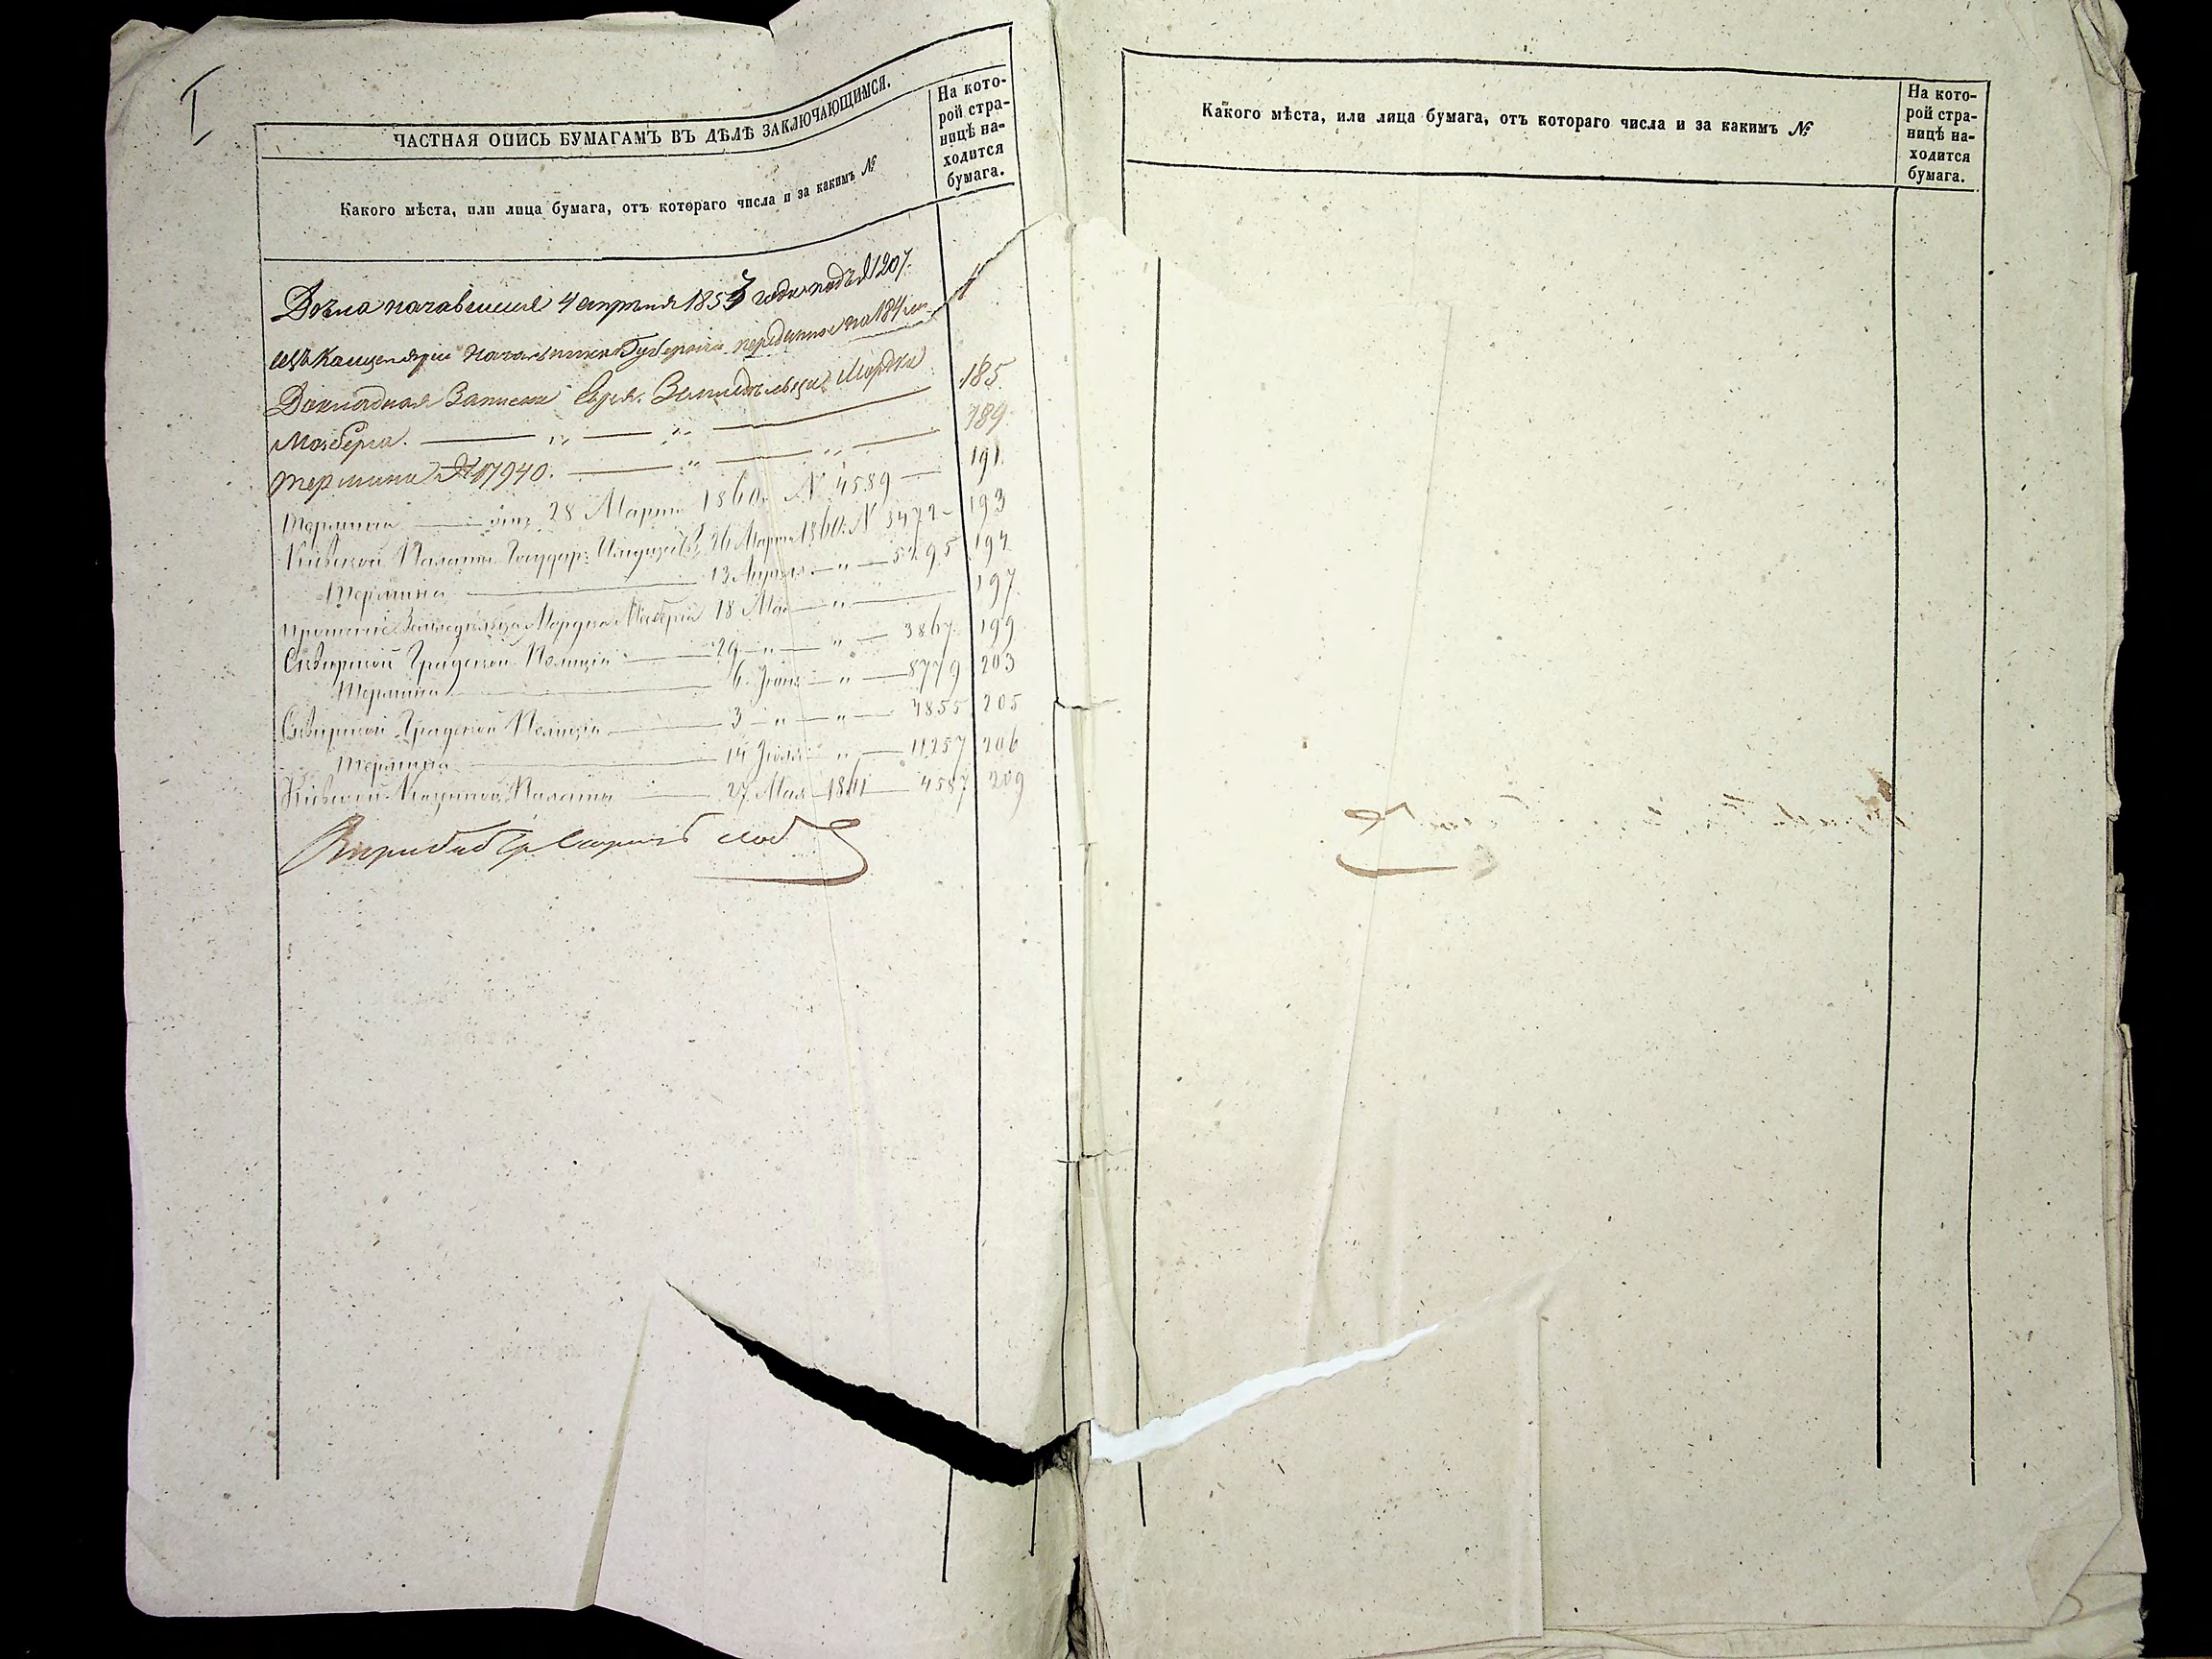 I
ЧАСТНАЯ ОПИСЬ БУМАГАМЪ ВЪ ДѢЛѢ ЗАКЛЮЧАЮЩИМСЯ.
Какого мѣста, или лица бумага, отъ котораго числа и за какимъ №
На кото-
рой стра-
ницѣ на-
ходится
бумага.
Дѣла начавшиеся 4 апреля 1853 года подъ № 1207.
Канцелярiи Начальника Губернiи переданное на 184
Докладная Записка Евр. Земледѣльца Мордка 185
Мозберга. 189
Термина № 17940. 191
Термина отъ 28 Марта 1860 № 4589 193
Кiевской Палаты Государ: Имуществ 26 Марта 1860 № 3472 194
Термина 13 Апреля " 5295 197
Прошенiе Земледѣльца Мордка Мозберга 18 Мая " " 199
Сквирской Градской Полицiи 29 " " 3867 203
Термина 6 Iюня " 8779 205
Сквирской Градской Полицiи 3 " " 4855 206
Термина 14 Iюля " 11257 209
Кiевской Казенной Палаты 27 Мая 1861 4587
Какого мѣста, или лица бумага, отъ котораго числа и за какимъ №
На кото-
рой стра-
ницѣ на-
ходится
бумага.